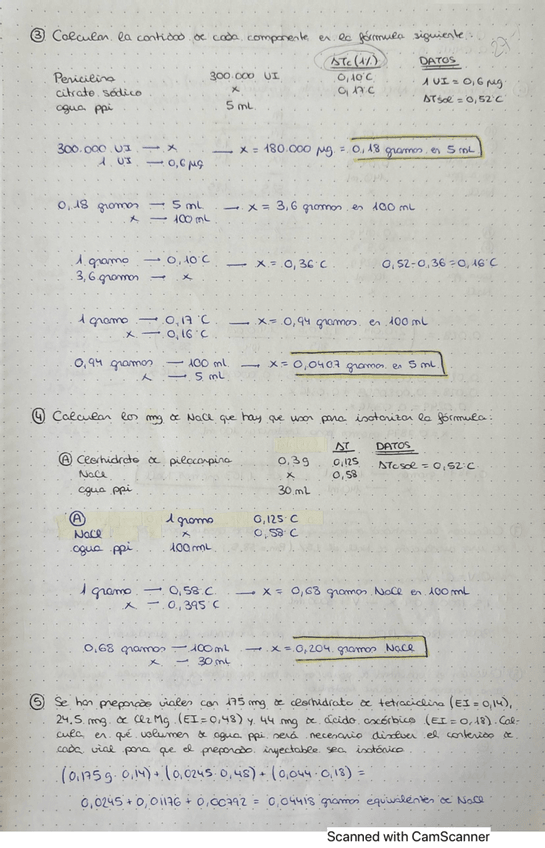 ③ Calcular la cantidad de cada componente en la fórmula siguiente:
27
ΔTc (1%) DATOS
Penicilina 300.000 UI 0,10°C 1 UI = 0,6 µg
citrato sódico x 0,17°C ΔTsol = 0,52°C
agua ppi 5 mL
300.000 UI → x — x = 180.000 µg = 0,18 gramos en 5 mL
1 UI → 0,6 µg
0,18 gramos → 5 mL → x = 3,6 gramos en 100 mL
x → 100 mL
1 gramo → 0,10°C — x = 0,36°C 0,52-0,36=0,16°C
3,6 gramos → x
1 gramo → 0,17°C — x = 0,94 gramos en 100 mL
x → 0,16°C
0,94 gramos → 100 mL → x = 0,0407 gramos en 5 mL
x → 5 mL
④ Calcular los mg de NaCl que hay que usar para isotonizar la fórmula:
ΔT DATOS
Ⓐ Clorhidrato de pilocarpina 0,3g 0,125 ΔTcsol = 0,52°C
NaCl x 0,58
agua ppi 30 mL
Ⓐ 1 gramo 0,125°C
NaCl x 0,58°C
agua ppi 100 mL
1 gramo → 0,58°C → x = 0,68 gramos NaCl en 100 mL
x → 0,395°C
0,68 gramos → 100 mL → x = 0,204 gramos NaCl
x → 30 mL
⑤ Se han preparado viales con 175 mg de clorhidrato de tetraciclina (EI = 0,14),
24,5 mg de Cl2Mg (EI = 0,48) y 44 mg de ácido ascórbico (EI = 0,18). Cal-
cula en qué volumen de agua ppi será necesario disolver el contenido de
cada vial para que el preparado inyectable sea isotónico
(0,175g · 0,14) + (0,0245 · 0,48) + (0,044 · 0,18) =
0,0245 + 0,01176 + 0,00792 = 0,04418 gramos equivalentes de NaCl
Scanned with CamScanner